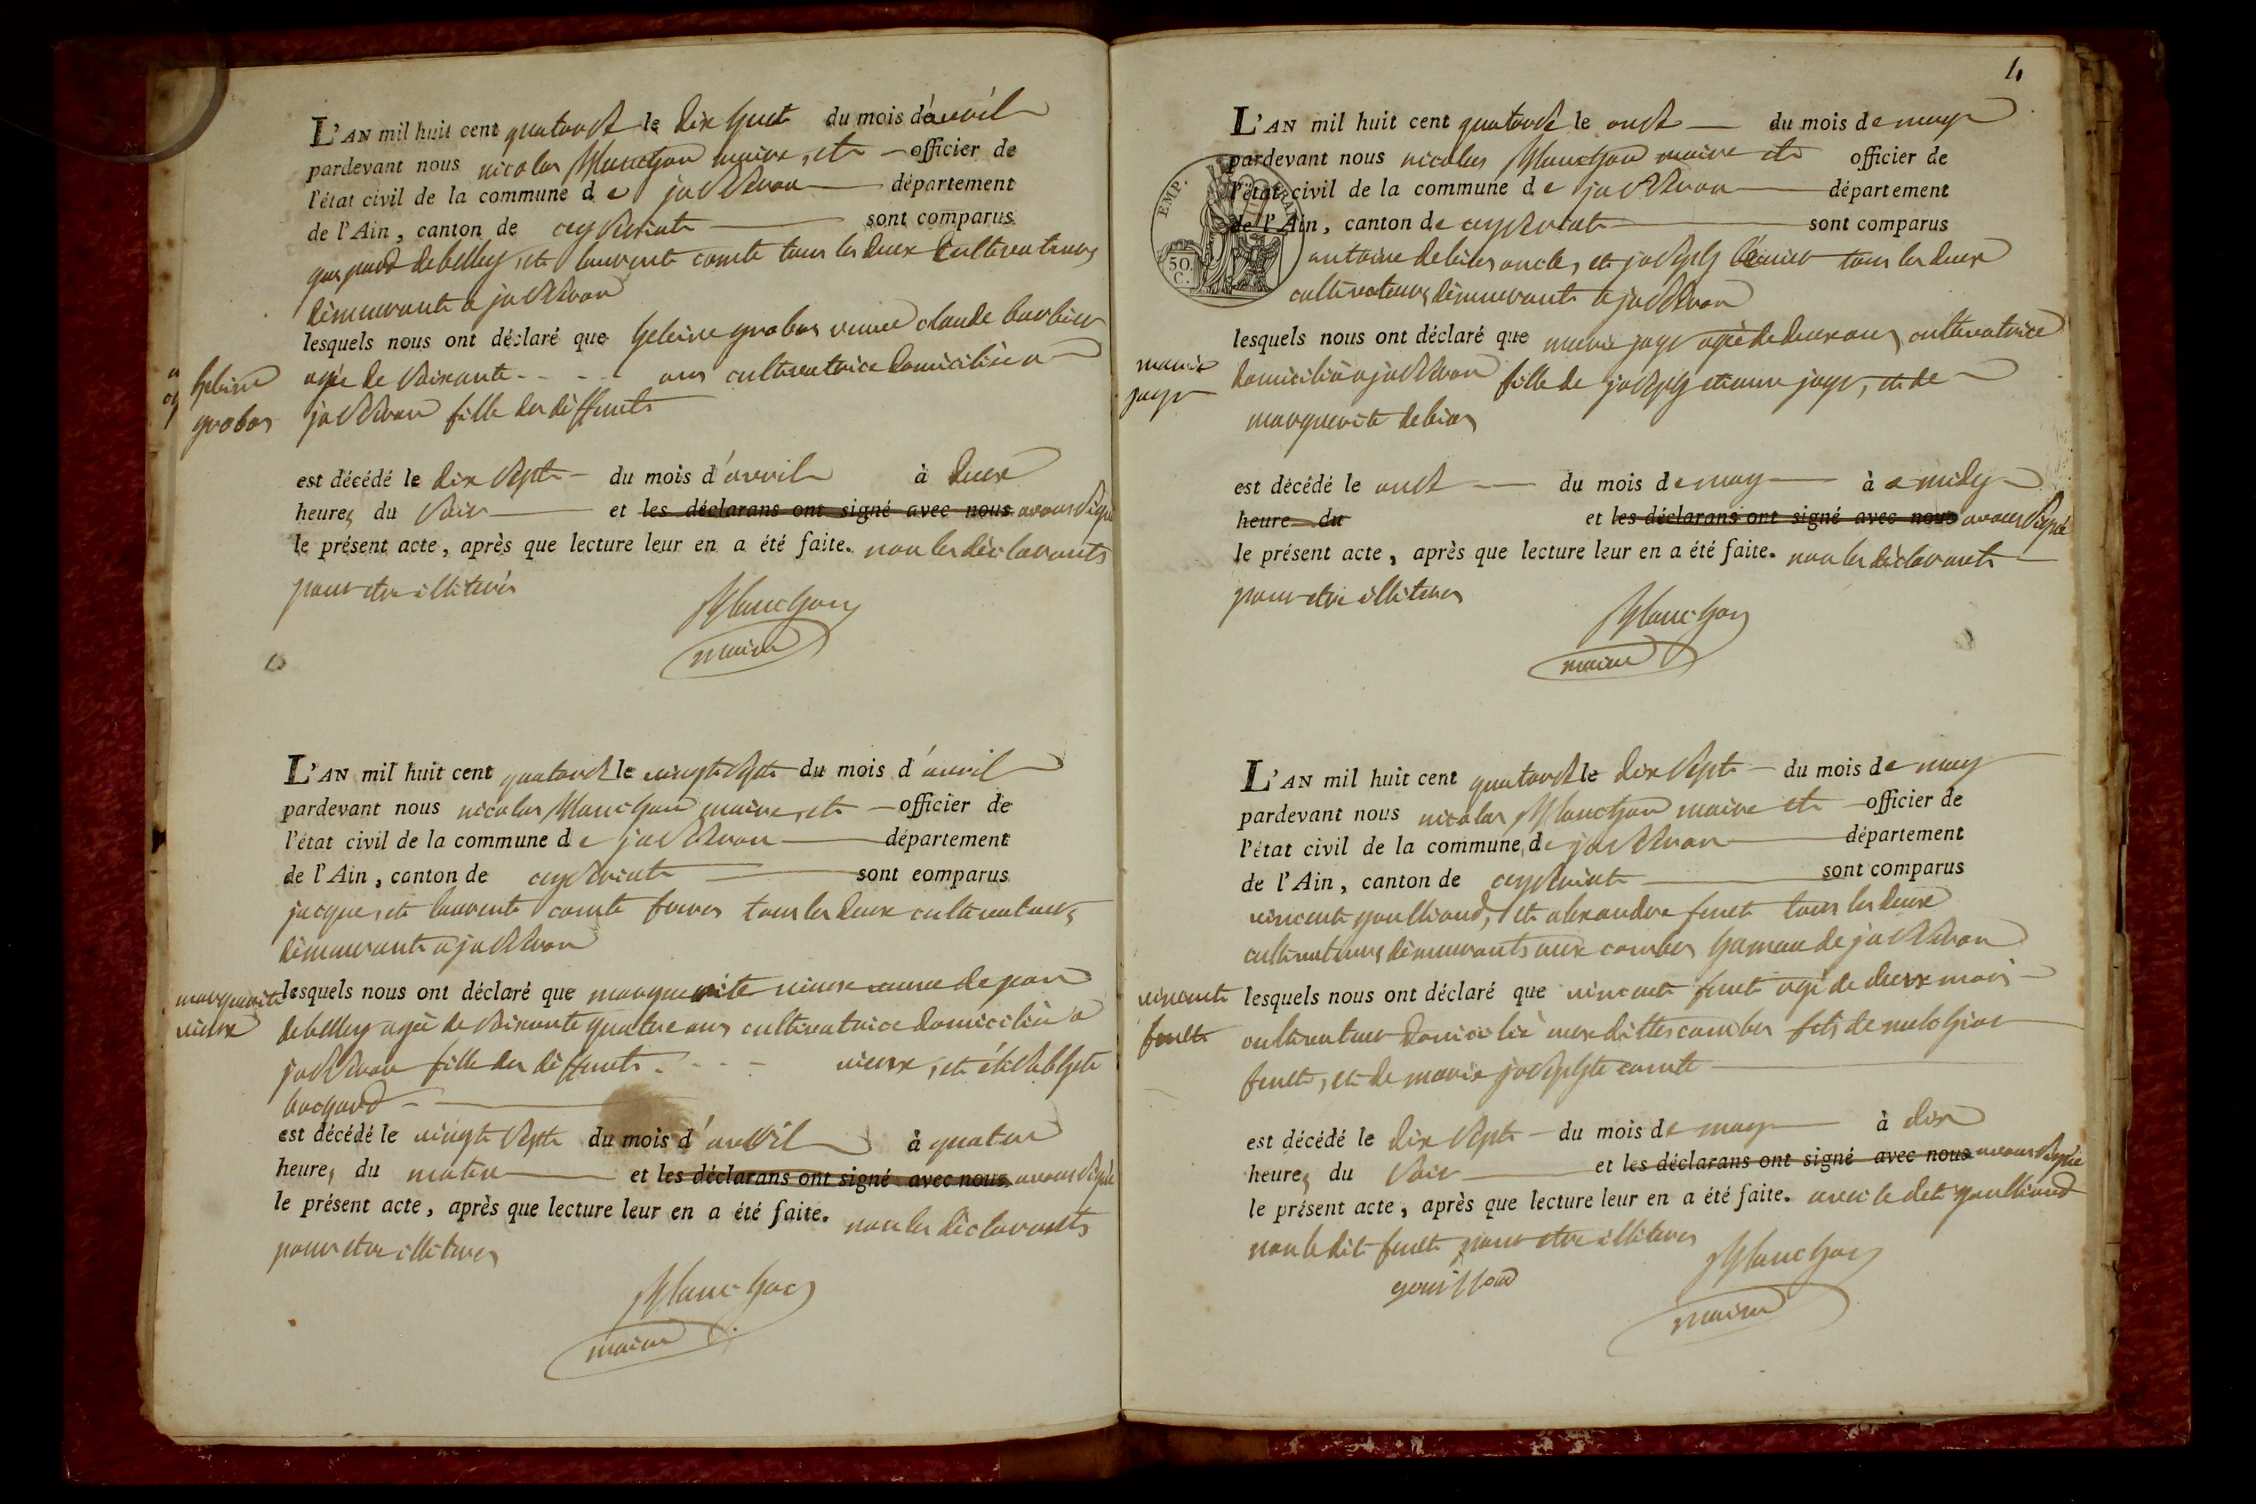 L'AN mil huit cent quatorse le dix huit du mois d'avvril
pardevant nous nicolas planchon maire, et officier de
l'état civil de la commune de jasseron département
de l'Ain, canton de ceyseriat sont comparus
gaspard debelley, et laurent comte tous les deux cultivateurs
demeurants a jasseron
lesquels nous ont déclaré que heleine grobas veuve claude barbier
heleine
grobas
agée de soixante ans cultivatrice domiciliée a
jasseron fille des deffunts
est décédé le dix sept du mois d'avvril à deux
heures du soir et les déclarans ont signé avec nous avons signé
le présent acte, après que lecture leur en a été faite. non les déclarants
pour etre illiterés
planchon
maire
L'AN mil huit cent quatorse le vingt sept du mois d'avvril
pardevant nous nicolas planchon maire, et officier de
l'état civil de la commune de jasseron département
de l'Ain, canton de ceyseriat sont comparus
jacque, et laurent comte freres tous les deux cultivateurs
demeurants a jasseron
marguerite
vieux
lesquels nous ont déclaré que marguerite vieux veuve de jean
debelley agée de soixante quatre ans cultivatrice domiciliée a
jasseron fille des deffunts vieux, et
bochard
est décédé le vingt sept du mois d'avvril à quatre
heures du matin et les déclarans ont signé avec nous avons signé
le présent acte, après que lecture leur en a été faite. non les déclarants
pour etre illiteres
planchon
maire
4
L'AN mil huit cent quatorse le onse du mois de may
pardevant nous nicolas planchon maire et officier de
l'état civil de la commune de jasseron département
de l'Ain, canton de ceyseriat sont comparus
EMP.
50.
C.
antoine debias oncle, et joseph tous les deux
cultivateurs demeurants a jasseron
lesquels nous ont déclaré que marie jayr agée de deux ans cultivatrice
marie
jayr
domiciliée a jasseron fille de joseph etienne jayr, et de
marguerite debias
est décédé le onse du mois de may à a midy
heure du et les déclarans ont signé avec nous avons signé
le présent acte, après que lecture leur en a été faite. non les déclarants
pour etre illiteres
planchon
maire
L'AN mil huit cent quatorse le dix sept du mois de may
pardevant nous nicolas planchon maire et officier de
l'état civil de la commune de jasseron département
de l'Ain, canton de ceyseriat sont comparus
vincent goullioud, et alexandre feuet tous les deux
cultivateurs demeurants aux combes hameau de jasseron
vincent
feuet
lesquels nous ont déclaré que vincent feuet agé de deux mois
cultivateur domicilié aux dittes combes fils de melchior
feuet, et de marie josephte comte
est décédé le dix sept du mois de may à dix
heures du soir et les déclarans ont signé avec nous avons signé
le présent acte, après que lecture leur en a été faite. avec le dit goullioud
non le dit feuet pour etre illiteres
planchon
maire